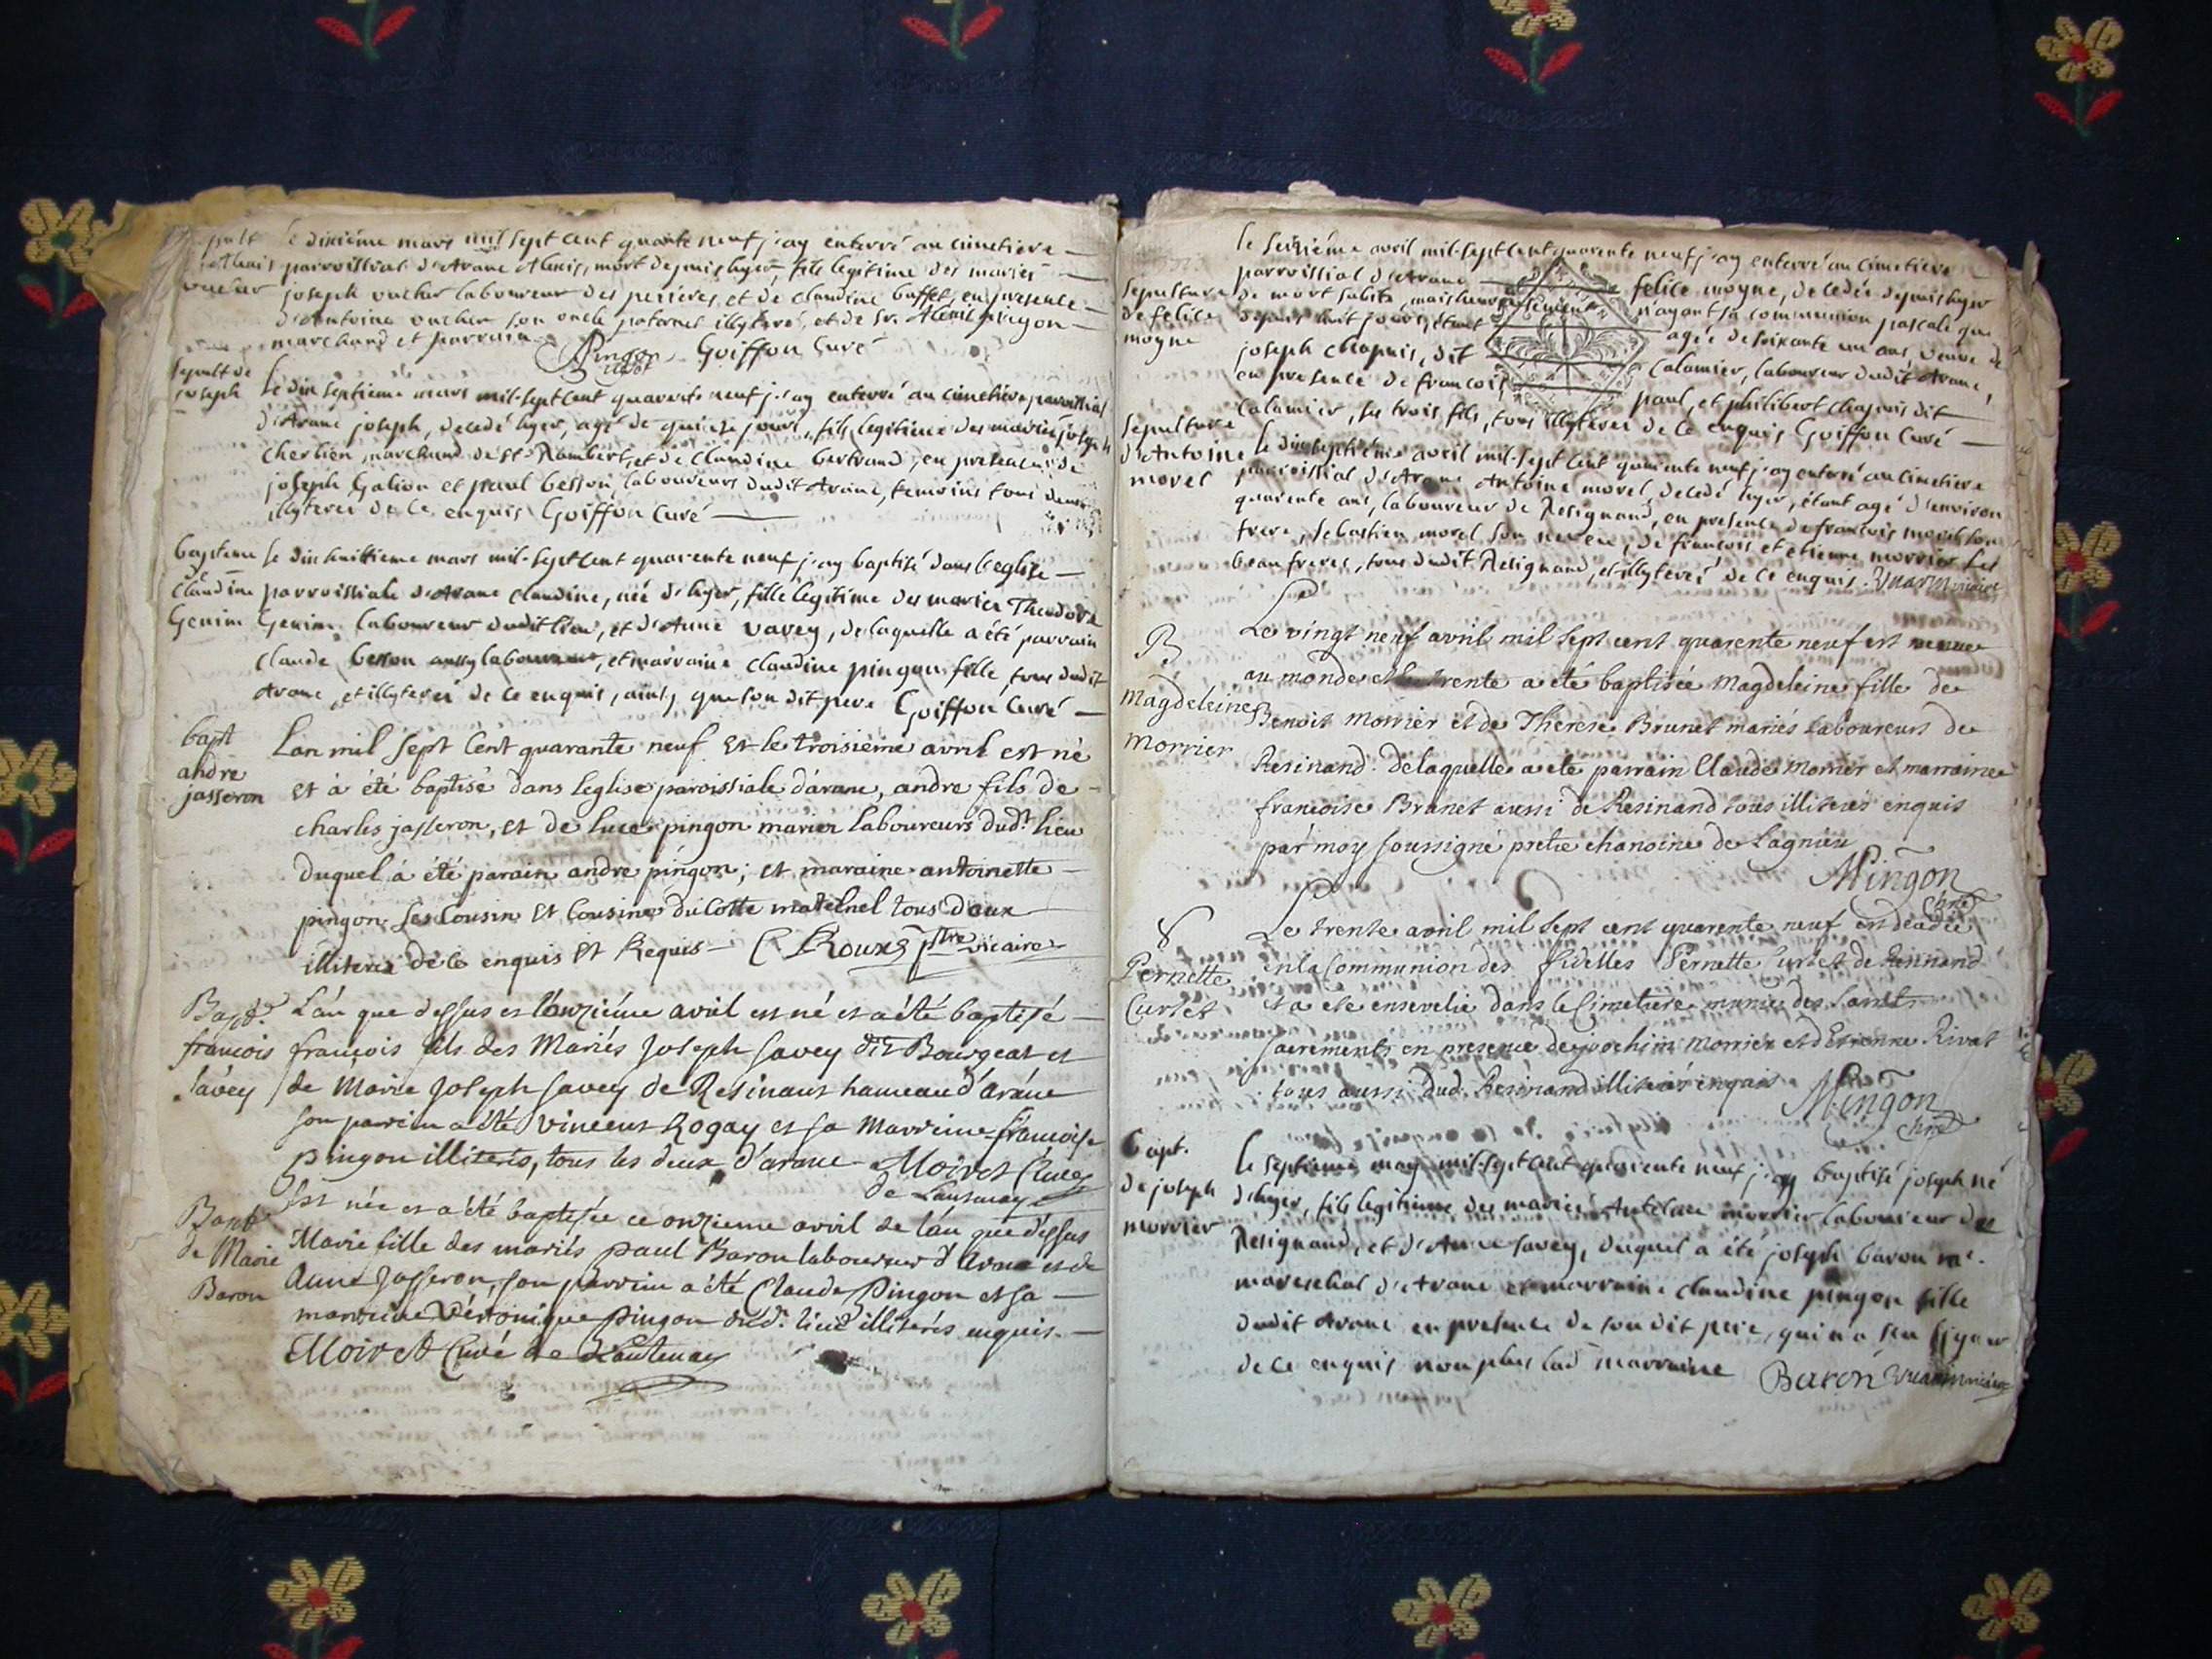 sepult le dixiéme mars mil sept cent quarante neuf j'ay enterré au cimetiere
d'Alexis parroissial d'Arane Alexis, mort depuis hyer, fils legitime des mariés
vucher joseph vucher laboureur des perieres, et de claudine buffet, en presence
d'Antoine vucher son oncle paternel illyteré, et de Sr. Alexis pingon
marchand et parrain Pingon Goiffon Curé
sepult de
joseph
le dix septième mars mil-sept cent quarente neuf j'ay enterré au cimetiere parroissial
d'Arane joseph, decedé hyer, agé de quinze jours, fils legitime des mariés joseph
cherbien marchand de St Rambert, et de claudine bertrand, en presence de
joseph Galion et paul besson laboureurs dudit Arane, temoins tous deux
illyterés de ce enquis Goiffon Curé
bapteme le dix huittieme mars mil-sept cent quarente neuf j'ay baptisé dans l'eglise
de
claudine parroissiale d'Arane claudine, née d'hyer, fille legitime des mariés Theodore
Genim Genim laboureur dudit lieu, et d'Anne vavey, de laquelle a été parrain
claude besson aussy laboureur, et marraine claudine pingon fille, tous dudit
Arane, et illyterés de ce enquis, ainsy que son dit pere Goiffon Curé
bapt L'an mil sept Cent quarante neuf Et le troisiéme avril est né
andre
jasseron Et à été baptisé dans leglise paroissiale d'arane, andre fils de
charles jasseron, Et de luce pingon mariés laboureurs dud.t lieu
duquel à été parain andre pingon; et maraine antoinette
pingon ses Cousin Et Cousine du Cotte maternel tous deux
illiterés de ce enquis Et Requis C Roux ptre vicaire
Bapt. L'an que dessus et l'onziéme avril est né et a été baptisé
francois francois fils des Mariés Joseph savey dit Bourgeat et
savey de Marie Joseph savey de Resinans hameau d'arane
son parrein a été vincent Rogay et sa Marreine francoise
pingon illiterés, tous les deux d'arane Moiret Curé
de Lantenay
Bapt Est née et a été baptisée ce onzieme avril de l'an que dessus
de Marie Marie fille des mariés paul Baron laboureur d'Arane et de
Baron Anne Jasseron, son parrein a été Claude Pingon et sa
marreine Véronique Pingon dud. lieu illiterés enquis.
Moiret Curé de Lantenay
le seiziéme avril mil-sept cent quarente neuf j'ay enterré au cimetiere
parroissial d'Arane felice moyne, decedée depuis hyer
sepulture de mort subite, mais heureusement n'ayant fa communion pascale que
de felice depuis huit jours, étant agée de soixante un ans, veuve de
moyne joseph chapuis, dit Calamier, laboureur dudit Arane,
en presence de francois, paul, et philibert chapuis dit
Calamier, ses trois fils, tous illyterés de ce enquis Goiffon Curé
sepulture
d'Antoine
morel
le dix septiéme avril mil-sept cent quarente neuf j'ay enterré au cimetiere
parroissial d'Arane Antoine morel, decedé hyer, étant agé d'environ
quarente ans, laboureur de Resignand, en presence de francois morel son
frere, sebastien morel son neveu, de francois et etienne morrier ses
beaufreres, tous dudit Resignand, et illyterés de ce enquis. Vuarin vicaire
B Le vingt neuf avril mil sept cent quarente neuf est venue
au monde et le trente a eté baptisée Magdeleine fille de
Magdeleine Benoit Morrier et de Therese Brunet mariés Laboureurs de
Morrier Resinand. de laquelle a eté parrain Claude Morrier et marraine
francoise Brunet aussi de Resinand tous illiterés enquis
par moy soussigné pretre chanoine de Lagnieu
Mingon
chne
Le trente avril mil sept cent quarente neuf est decedée
Pernette en la Communion des fidelles Pernette Curtet de Resinand
Curtet et a eté ensevelie dans le Cimetiere munie des saints
sacrements en presence de joachim Morrier et d'Etienne Rivat
tous aussi dud. Resinand illiterés enquis
Mingon
chne
bapt. le septiéme may mil-sept cent quarente neuf j'ay baptisé joseph né
de joseph d'hyer, fils legitime des mariés Antelme morrier laboureur de
morrier Resignand, et d'Anne savey, duquel a été joseph baron me.
mareschal d'Arane et marraine claudine pingon fille
dudit Arane en presence de son dit pere, qui n'a sçu signer
de ce enquis non plus lad marraine Baron Vuarin vicaire